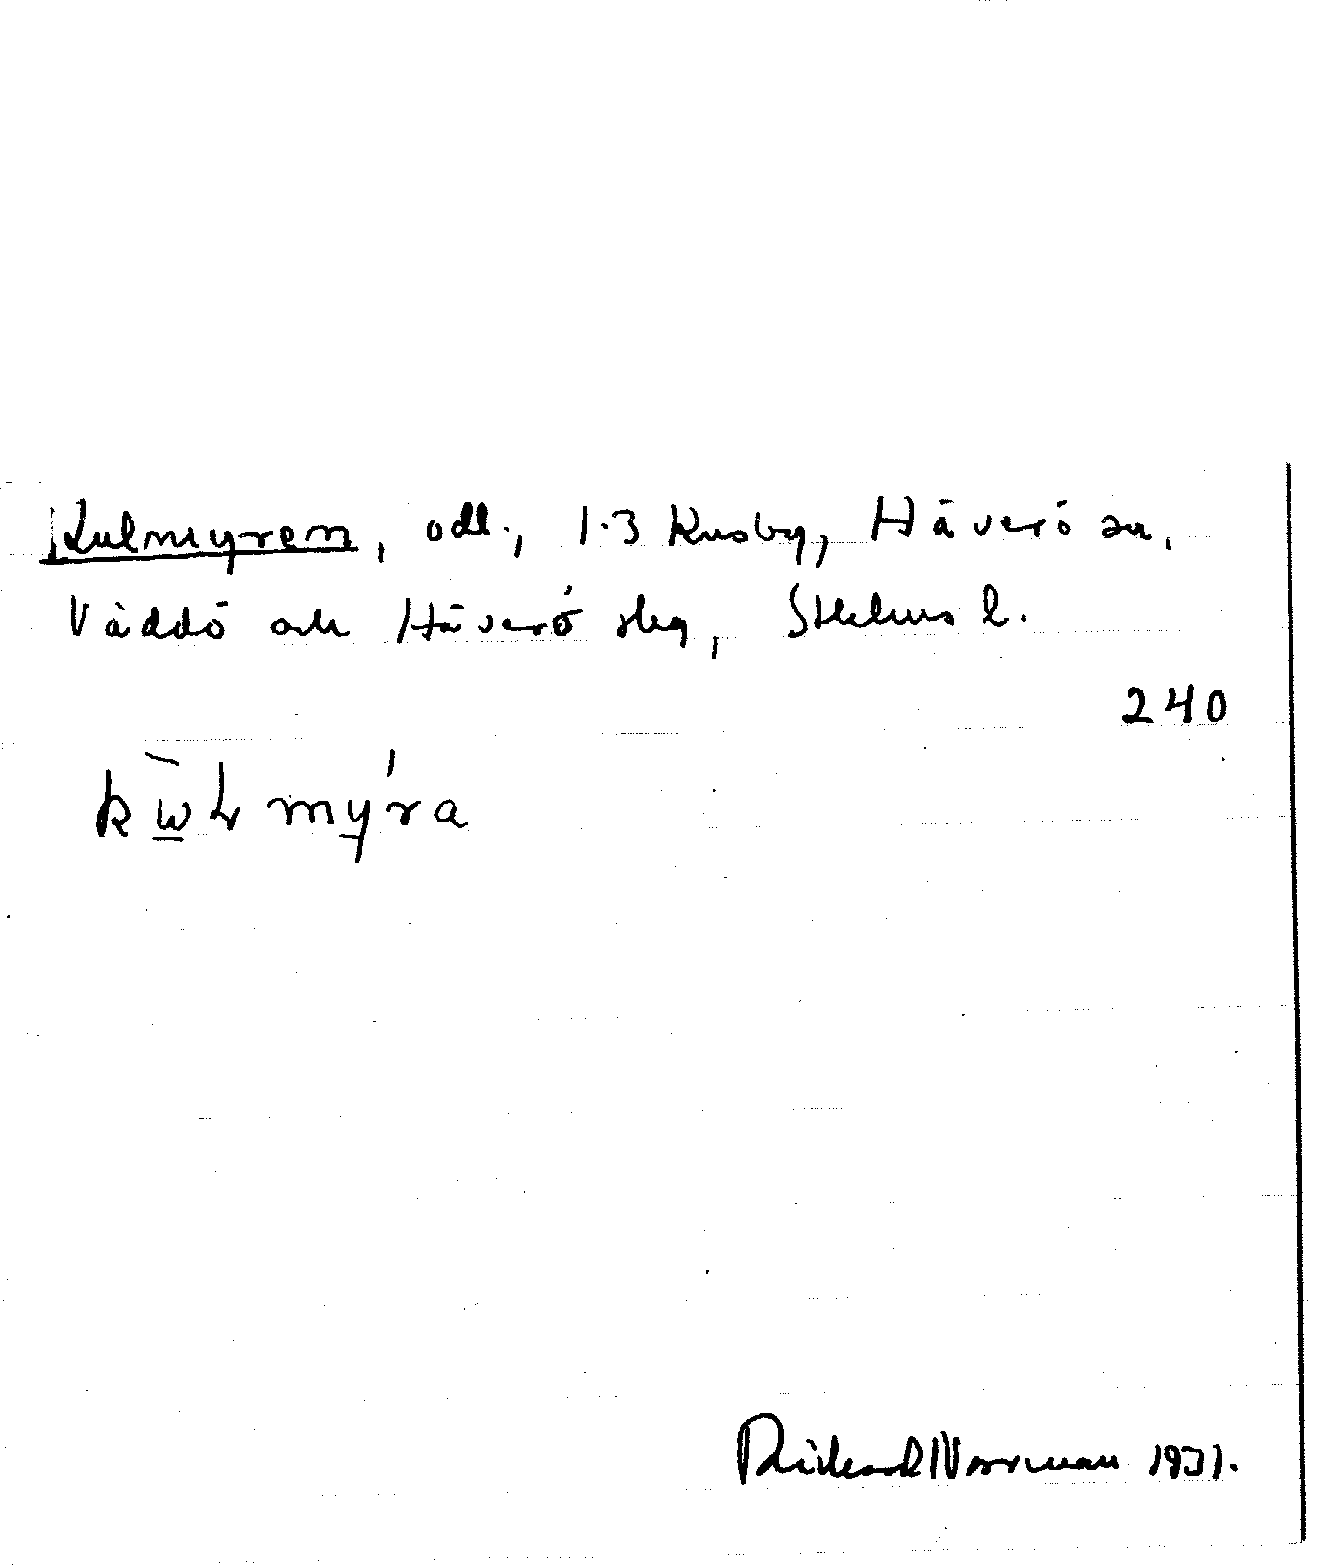 Kulmyren, odl., 1.3 Kusby, Häverö sn,
Väddö och Häverö skg, Sthlms l.
240
kὼlmýra
Rickard Norrman 1931.